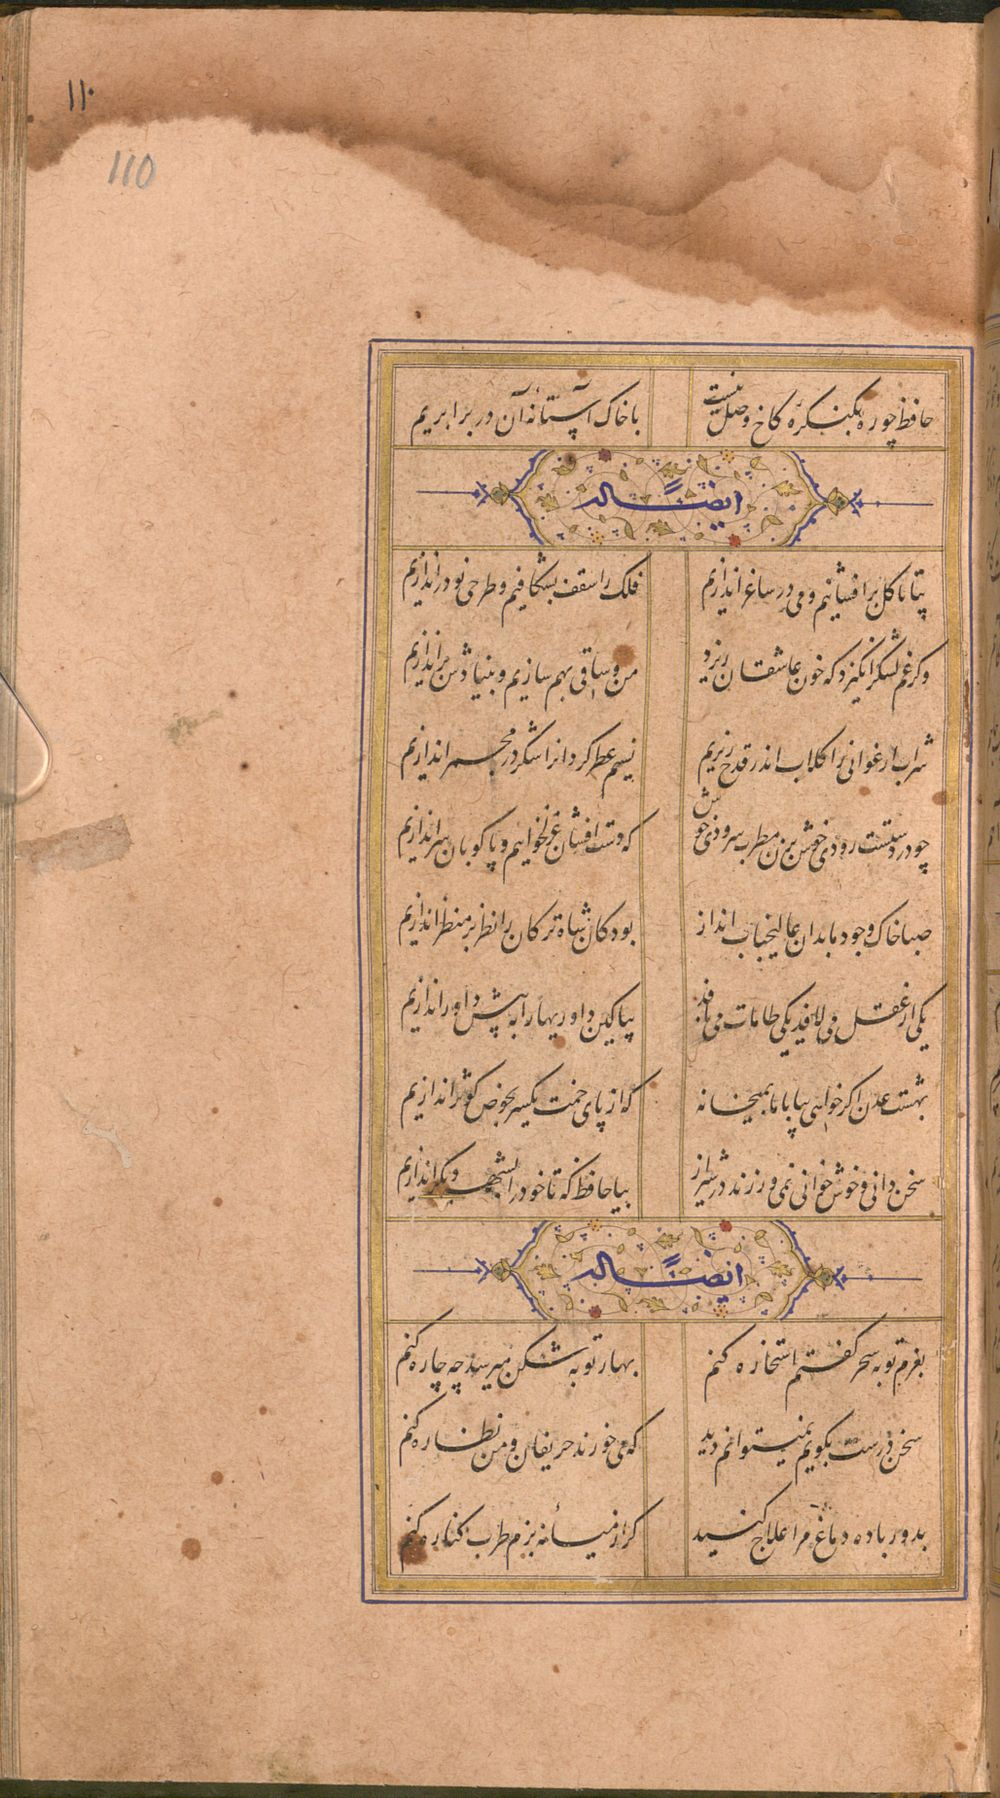 ۱۱۰
110
حافظ چو ره بکنکرهٔ کاخ وصل نیست با خاک آستانهٔ آن در برابریم
ایضاً له
بیتا تا کل برافشانیم و می در ساغر اندازیم فلک را سقف بشکافیم و طرحی نو در اندازیم
وکر غم لشکر انکیزد که خون عاشقان ریزد من و ساقی بهم سازیم و بنیادش براندازیم
شراب ارغوانی را کلاب اندر قدح ریزیم نسیم عطر کردانرا شکر در مجمر اندازیم
چو در دستست رودی خوش بزن مطرب سرودی خوش که دست افشان غزل خوانیم و پا کوبان سر اندازیم
صبا خاک وجود ما بدان عالیجناب انداز بود کان شاه ترکان را نظر بر منظر اندازیم
یکی از عقل می لافد یکی طامات می بافد بیا کین داوریها را به پیش داور اندازیم
بهشت عدن اکر خواهی بیا با ما بمیخانه که از پای خمت یکسر بحوض کوثر اندازیم
سخن دانی و خوش خوانی نمی ورزند در شیراز بیا حافظ که تا خود را بشهر دیکر اندازیم
ایضاً له
بعزم توبه سحر کفتم استخاره کنم بهار توبه شکن میرسد چه چاره کنم
سخن درست بکویم نمیتوانم دید که می خورند حریفان و من نظاره کنم
بدور باده دماغ مرا علاج کنید کر از میانه بزم طرب کناره کنم